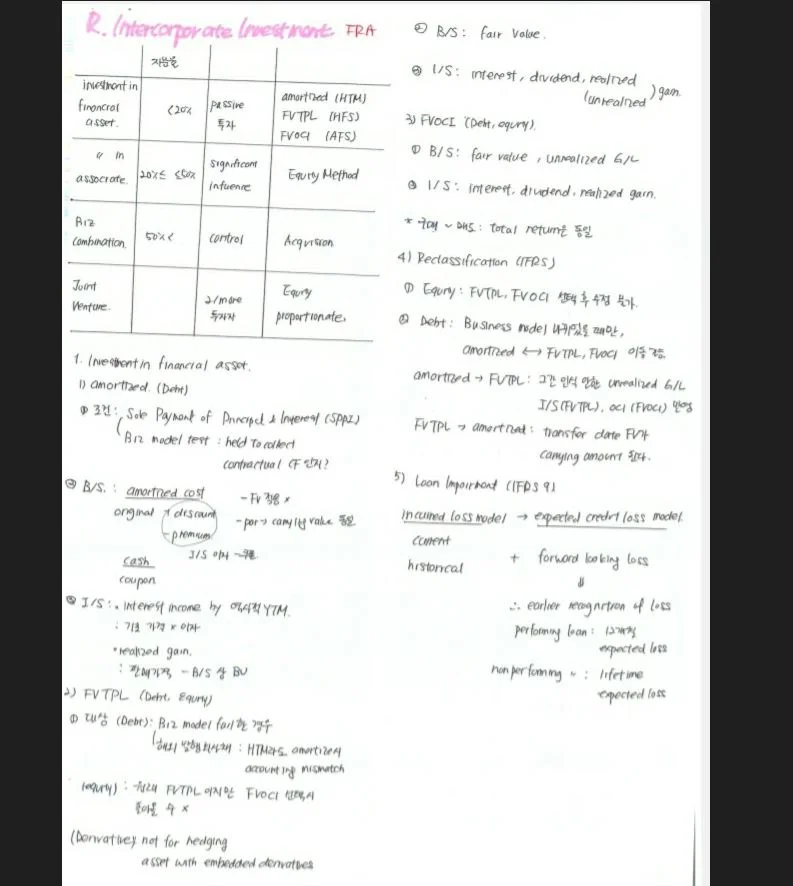 R. Intercorporate Investment FRA
지분율
investment in financial asset. <20% passive 투자 amortized (HTM) FVTPL (HFS) FVOCI (AFS)
〃 in associate. 20%≤ ≤50% significant influence Equity Method
Biz Combination. 50%< control Acquisition
Joint Venture. 2/more 투자자 Equity proportionate.
1. Investment in financial asset.
1) amortized. (Debt)
① 조건: Sole Payment of Principal & Interest (SPPI)
Biz model test : held to collect
contractual CF 인지?
② B/S. : amortized cost - FV 적용 ×
original + discount - par → carrying value 동일
- premium
cash I/S 이자
coupon
③ I/S : • interest income by 역사적 YTM.
: 기초 가격 × 이자
• realized gain.
: 판매가격 - B/S 상 BV
2) FVTPL (Debt, Equity)
① 대상 (Debt): Biz model fail한 경우
해외 발행 회사채 : HTM라도 amortized시
accounting mismatch
(equity) : 원래 FVTPL 이지만 FVOCI 선택시
돌아올 수 ×
(Derivative) not for hedging
asset with embedded derivatives
② B/S : fair value.
③ I/S : interest, dividend, realized
(unrealized) gain.
3) FVOCI (Debt, equity).
① B/S : fair value, unrealized G/L
② I/S : interest, dividend, realized gain.
* 구매 ~ 매도 : total return은 동일
4) Reclassification (IFRS)
① Equity : FVTPL, FVOCI 선택 후 수정 불가.
② Debt : Business model 바뀌었을 때만,
amortized ↔ FVTPL, FVOCI 이동 가능.
amortized → FVTPL : 그간 인식 안한 unrealized G/L
I/S (FVTPL), OCI (FVOCI) 반영
FVTPL → amortized : transfer date FV가
carrying amount 된다.
5) Loan Impairment (IFRS 9)
incurred loss model → expected credit loss model.
current
historical + forward looking loss
⇓
∴ earlier recognition of loss
performing loan : 12개월
expected loss
nonperforming 〃 : lifetime
expected loss